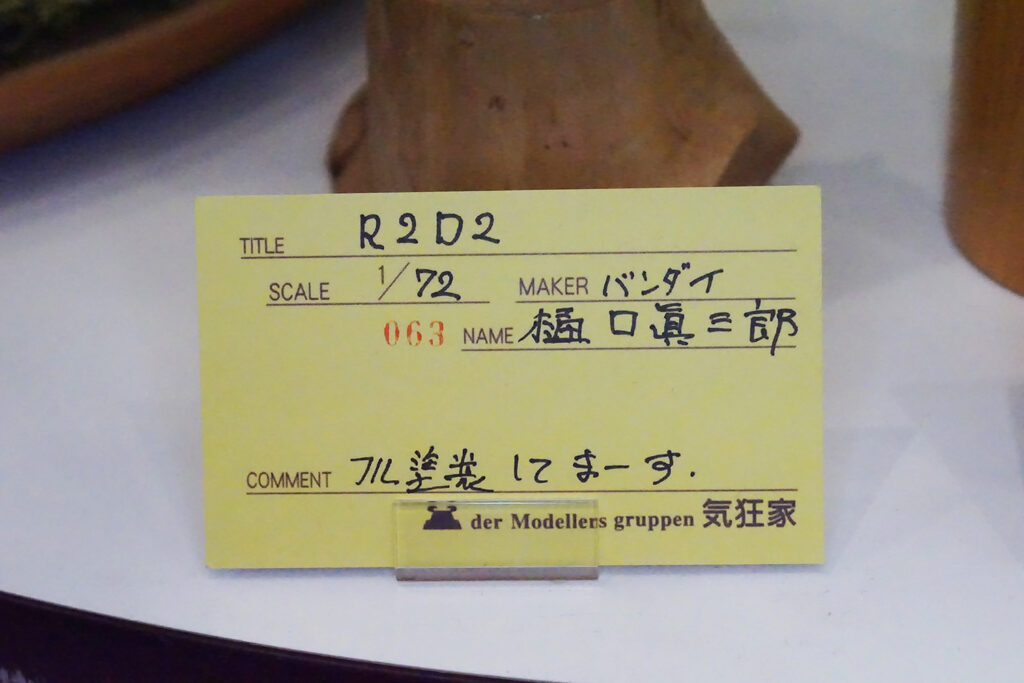 TITLE R2D2
SCALE 1/72 MAKER バンダイ
063 NAME 樋口眞三郎
COMMENT フル塗装してまーす.
der Modellers gruppen 気狂家